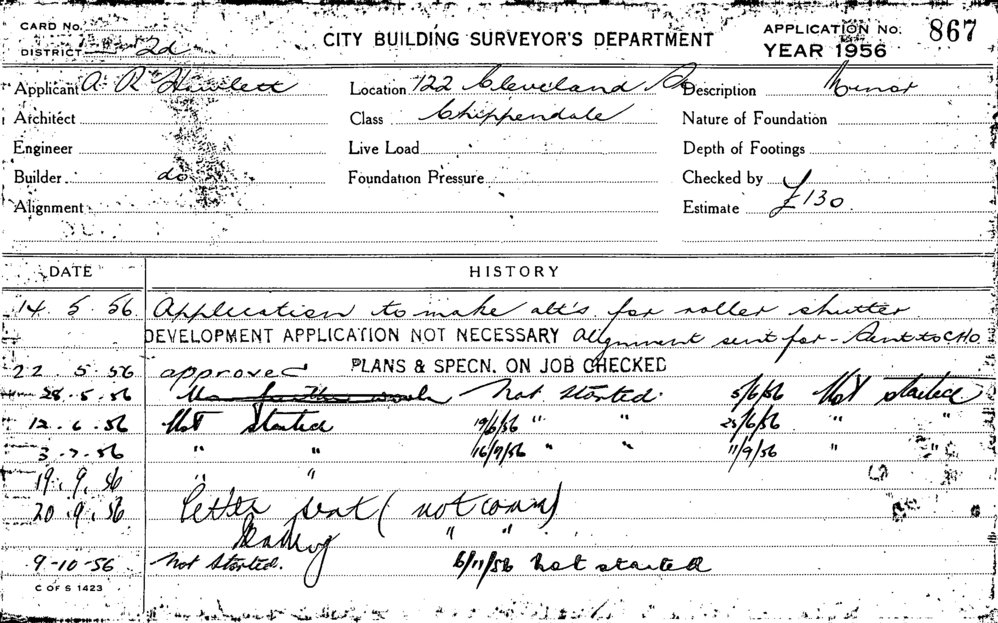 CARD No.
DISTRICT 2d
CITY BUILDING SURVEYOR'S DEPARTMENT
APPLICATION No. 867
YEAR 1956
Applicant A R Hewlett Location 122 Cleveland St Description Minor
Architect Class Chippendale Nature of Foundation
Engineer Live Load Depth of Footings
Builder do Foundation Pressure Checked by
Alignment Estimate £130
DATE HISTORY
14. 5. 56 Application to make alt's for roller shutter
DEVELOPMENT APPLICATION NOT NECESSARY Alignment sent for - Sent to CHO.
22. 5. 56 approved PLANS & SPECN. ON JOB CHECKED
28. 5. 56 Not Started. 5/6/56 Not started
12. 6. 56 Not Started 19/6/56 " " 25/6/56 " "
3. 7. 56 " " 16/7/56 " " 11/9/56 " "
19. 9. 56 " "
20. 9. 56 letter sent (not comm)
" "
9-10-56 Not Started. 6/11/56 Not started
C OF S 1423